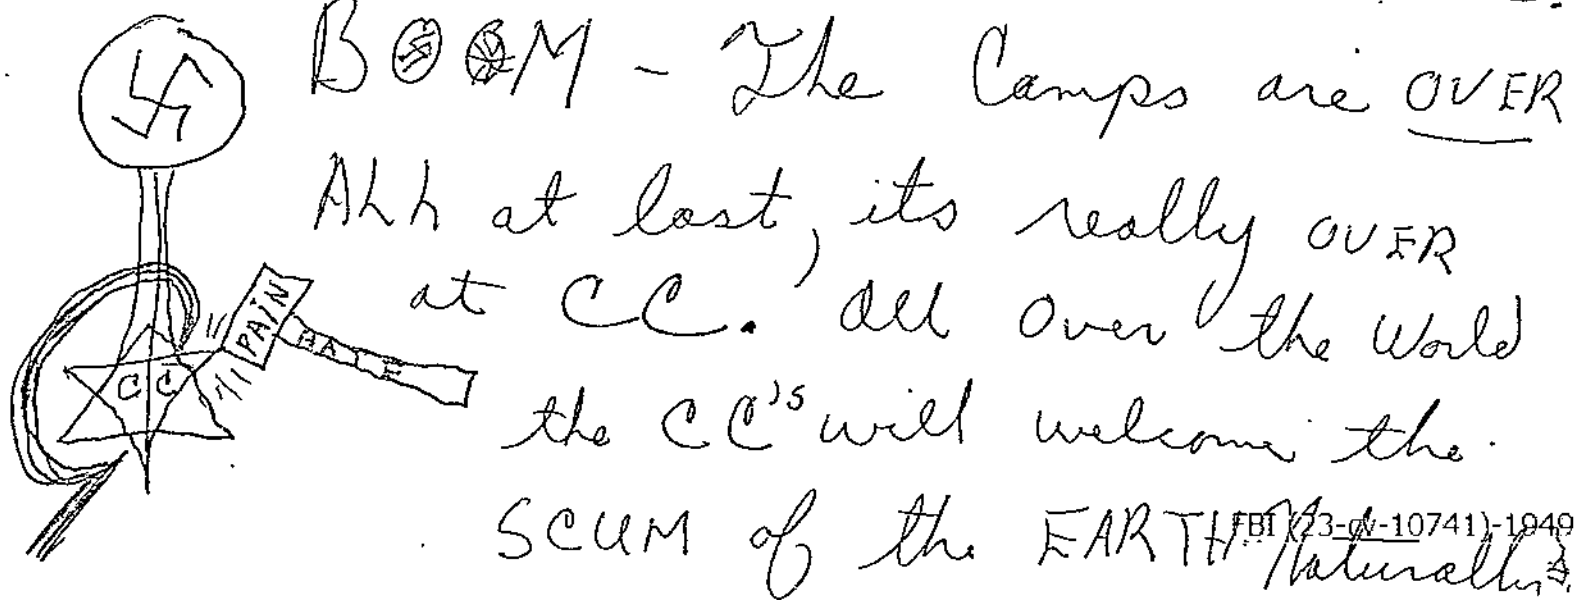 BOOM - The Camps are OVER
Ahh at last, its really OVER
at CC. All Over the World
the CC's will welcome the
SCUM of the EARTH Naturally
FBI (23-cv-10741)-1949
CC
PAIN
HATE